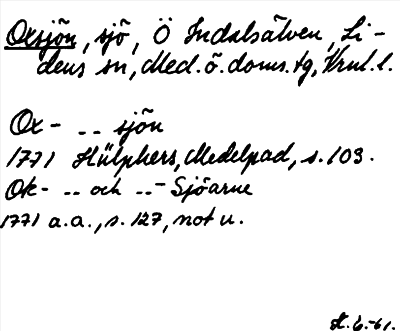 Oxsjön, sjö, Ö Indalsälven, Li-
dens sn, Med. ö. doms. tg, Vrnl. l.
Ox- -- sjön
1771 Hülphers, Medelpad, s. 109.
Ok- -- och --- Sjöarne
1771 a.a., s. 127, not u.
H. G. -61.